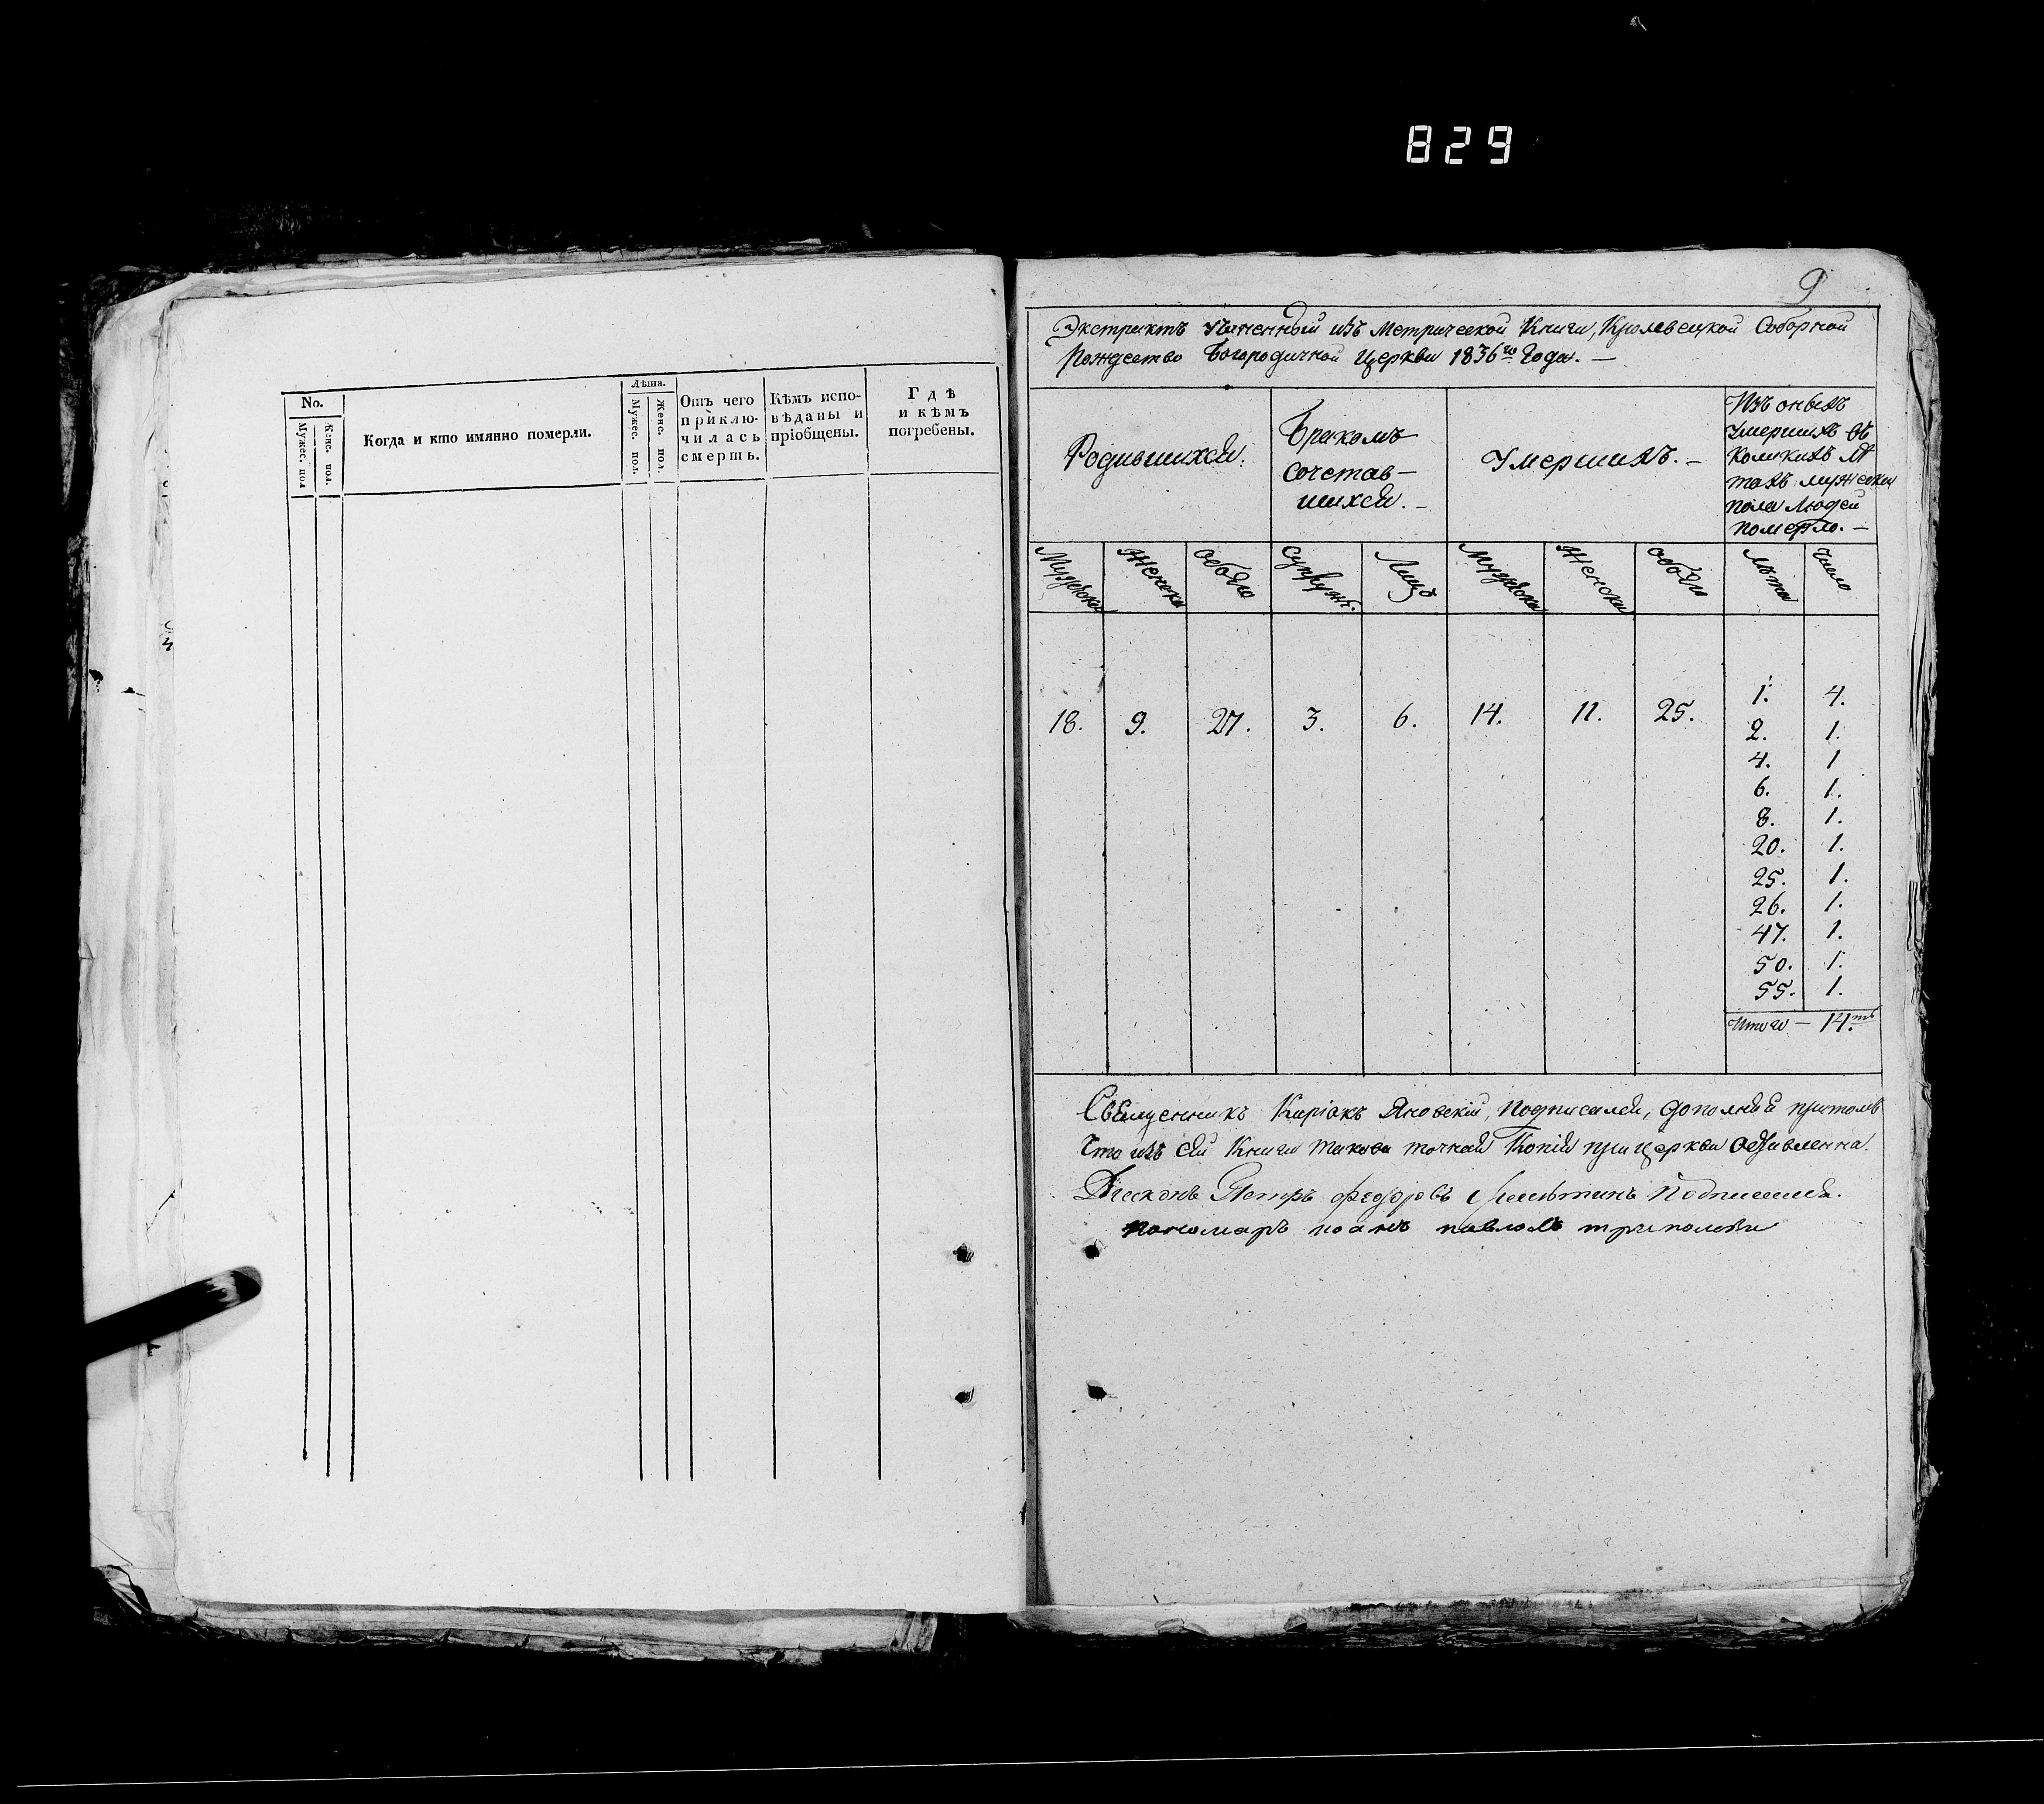 829
No.
Мужес. пол
Женс. пол.
Когда и кто имянно померли.
Лѣта.
Мужес. пол.
Женс. пол.
Отъ чего
приклю-
чилась
смерть.
Кѣмъ испо-
вѣданы и
пріобщены.
Гдѣ
и кѣмъ
погребены.
9
Экстрактъ учиненный изъ Метрической Книги, Кролевецкой Соборной
Рождество Богородичной Церкви 1836го Года. —
Родившихся.
Бракомъ
сочетав-
шихся. —
Умершихъ. —
Изъ оныхъ
умершихъ въ
коликихъ лѣ
тахъ мужеска
пола людей
померло. —
Мужеска
Женска
обоего
супруж.
Лицъ
Мужеска
Женска
обоего
лѣта
Число
18. 9. 27. 3. 6. 14. 11. 25.
1. 4.
2. 1.
4. 1
6. 1.
8. 1.
20. 1.
25. 1.
26. 1.
47. 1.
50. 1.
55. 1.
Итого — 14.ть
Священникъ Киріакъ Яновскій, подписался, дополняя притомъ
Что изъ сей Книги такова точная Копія при церкви оставленна.
Діаконъ Петръ Феодоровъ подписался.
пономарь иоанъ павловъ